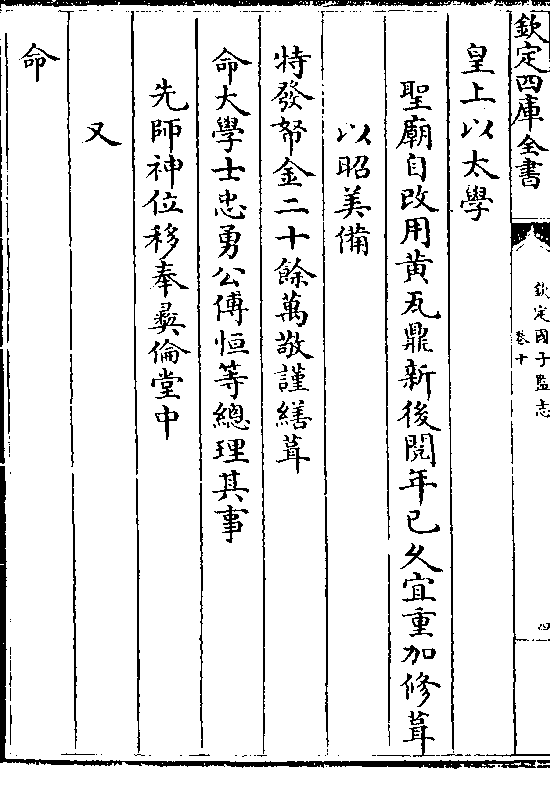 欽定四庫全書
欽定國子監志
卷十
四
皇上以太學
聖廟自改用黄瓦鼎新後閱年已久宜重加修葺
以昭美備
特發帑金二十餘萬敬謹繕葺
命大學士忠勇公傅恒等總理其事
先師神位移奉彞倫堂中
又
命